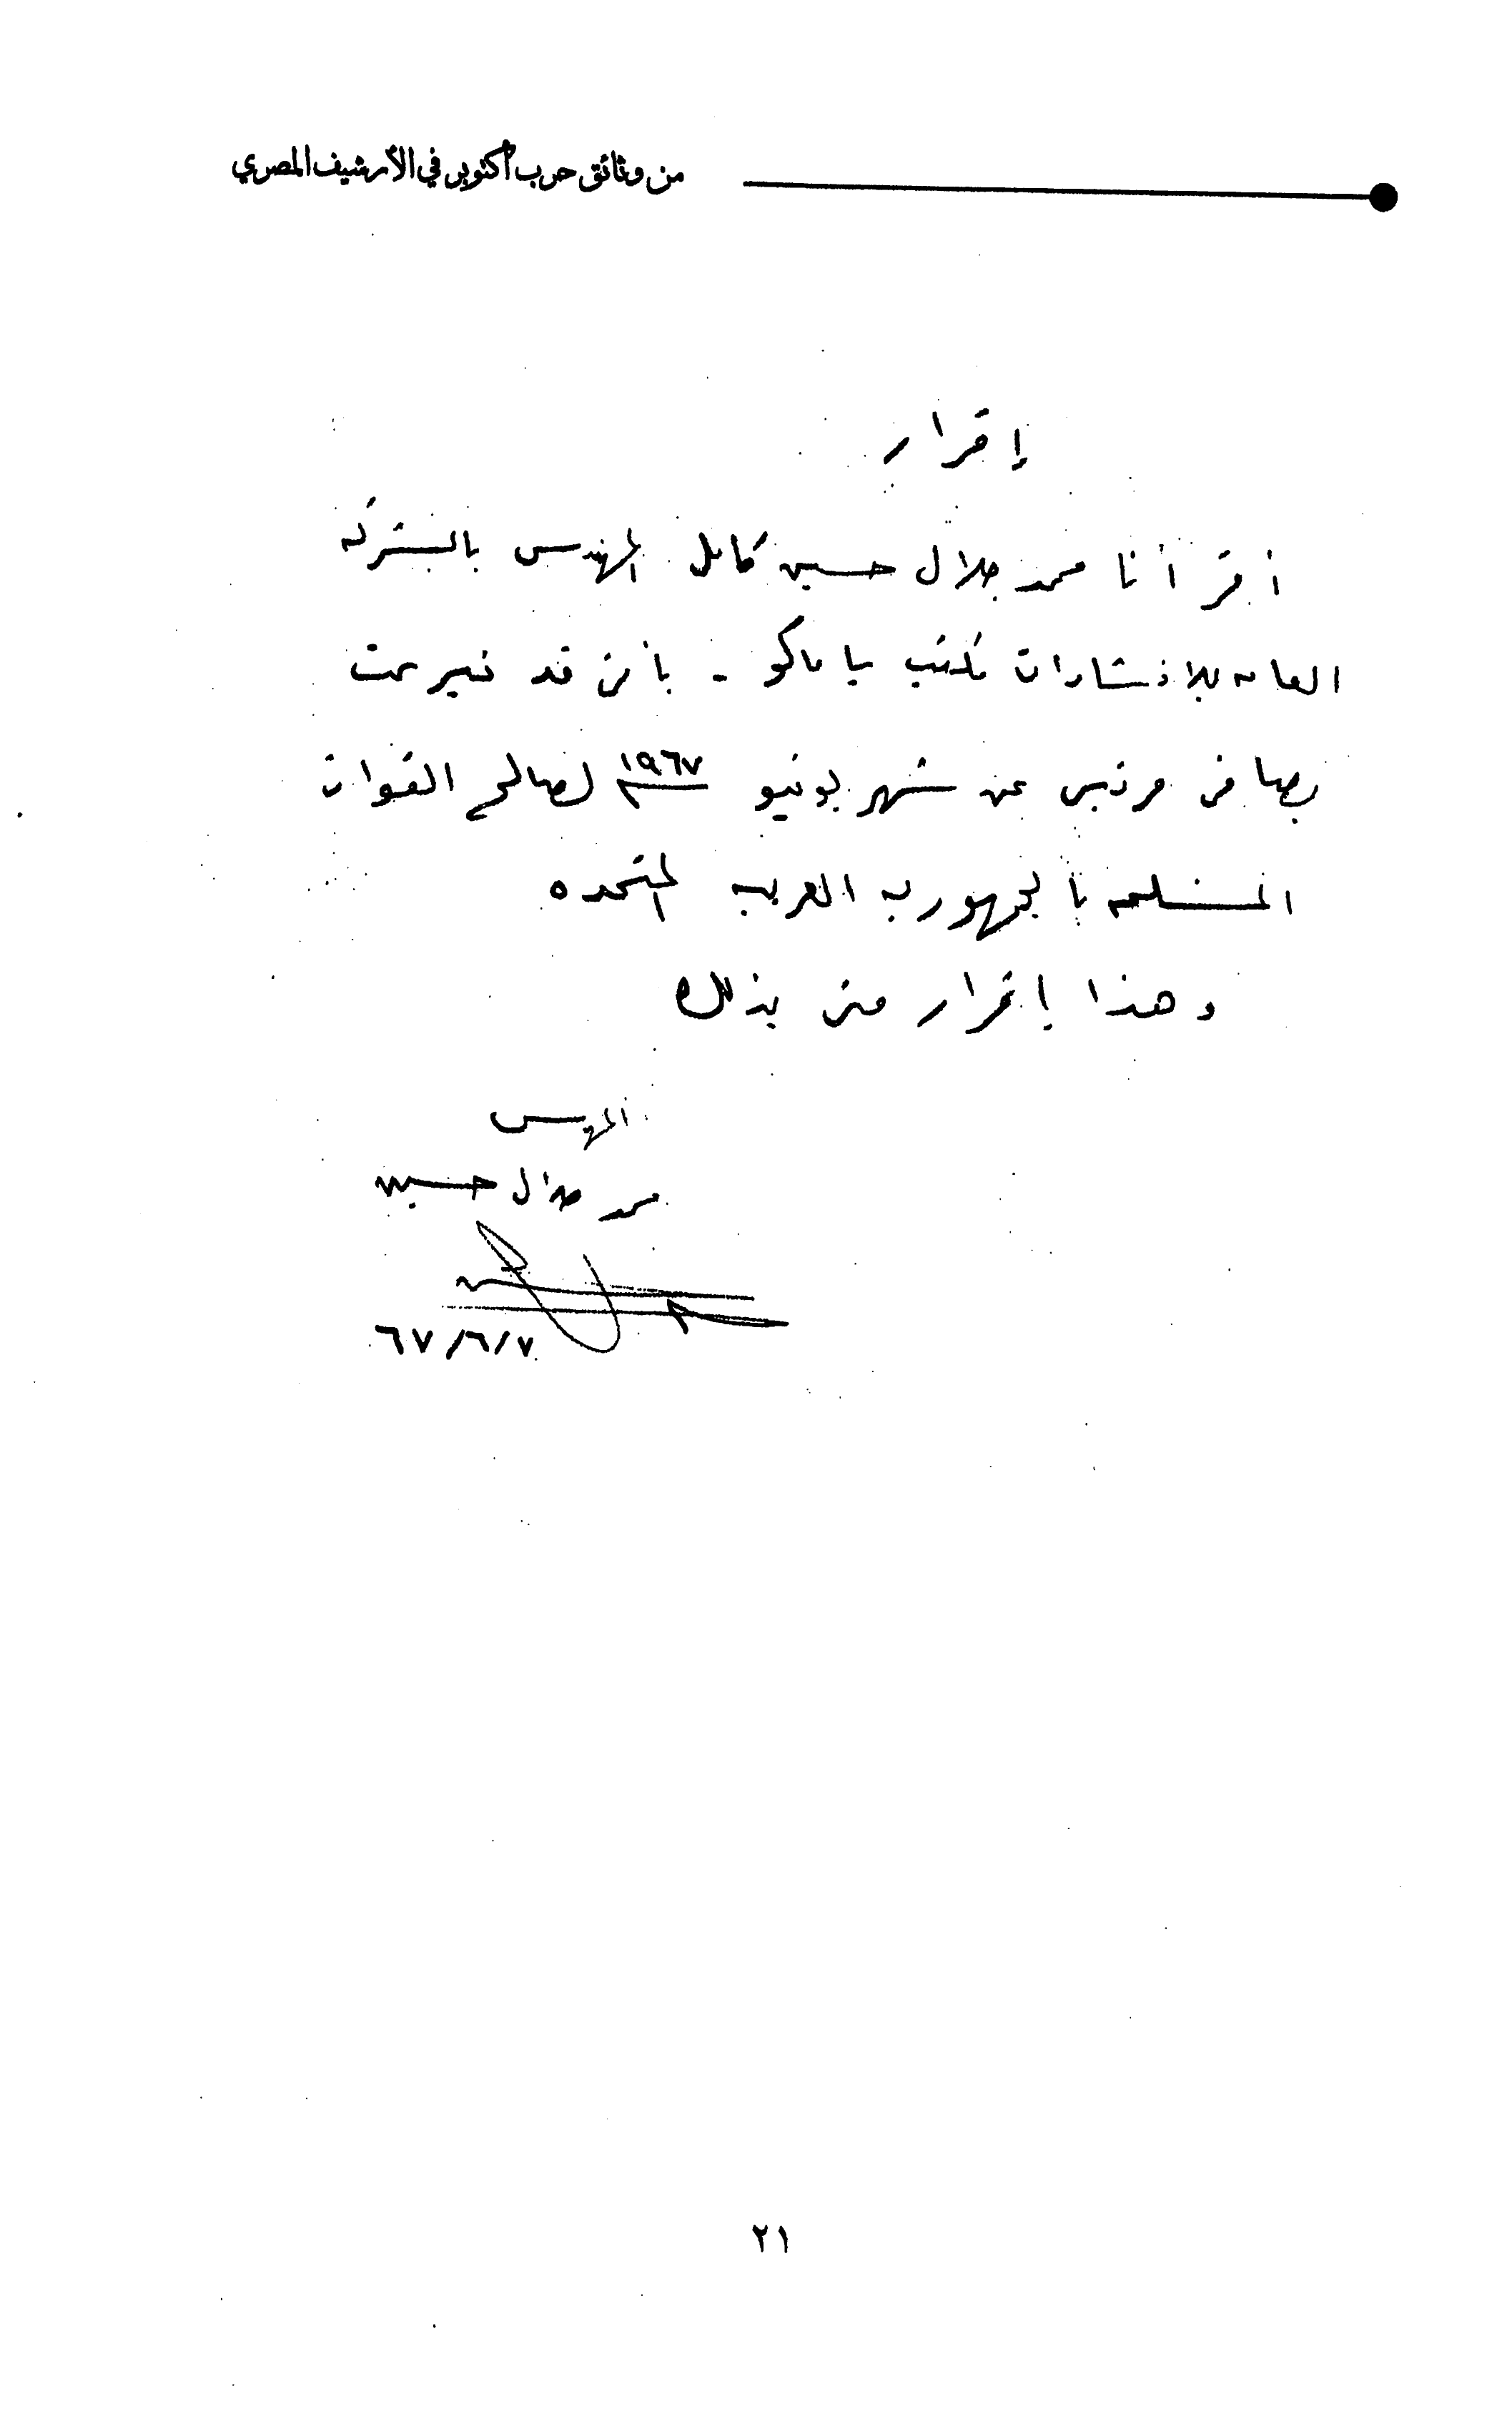 من وثائق حرب أكتوبر في الأرشيف المصري
إقرار
أقر أنا محمد جلال حسين كامل المهندس بالشركه
العامه للانشاءات مكتب باماكو - بأنى قد تبرعت
بصافى مرتبى عن شهر يونيو ١٩٦٧ لصالح القوات
المسلحه بالجمهوريه العربيه المتحده
وهذا إقرار منى بذلك
المهندس
محمد جلال حسين
٦٧/٦/٧
٢١